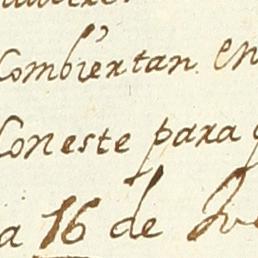 Combiertan en
Coneste para
a 16 de